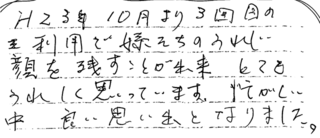 H23年10月より3回目の
利用で孫たちのうれしい
顔を残すことが出来とても
うれしく思っています。忙がしい
中良い思い出となりました。